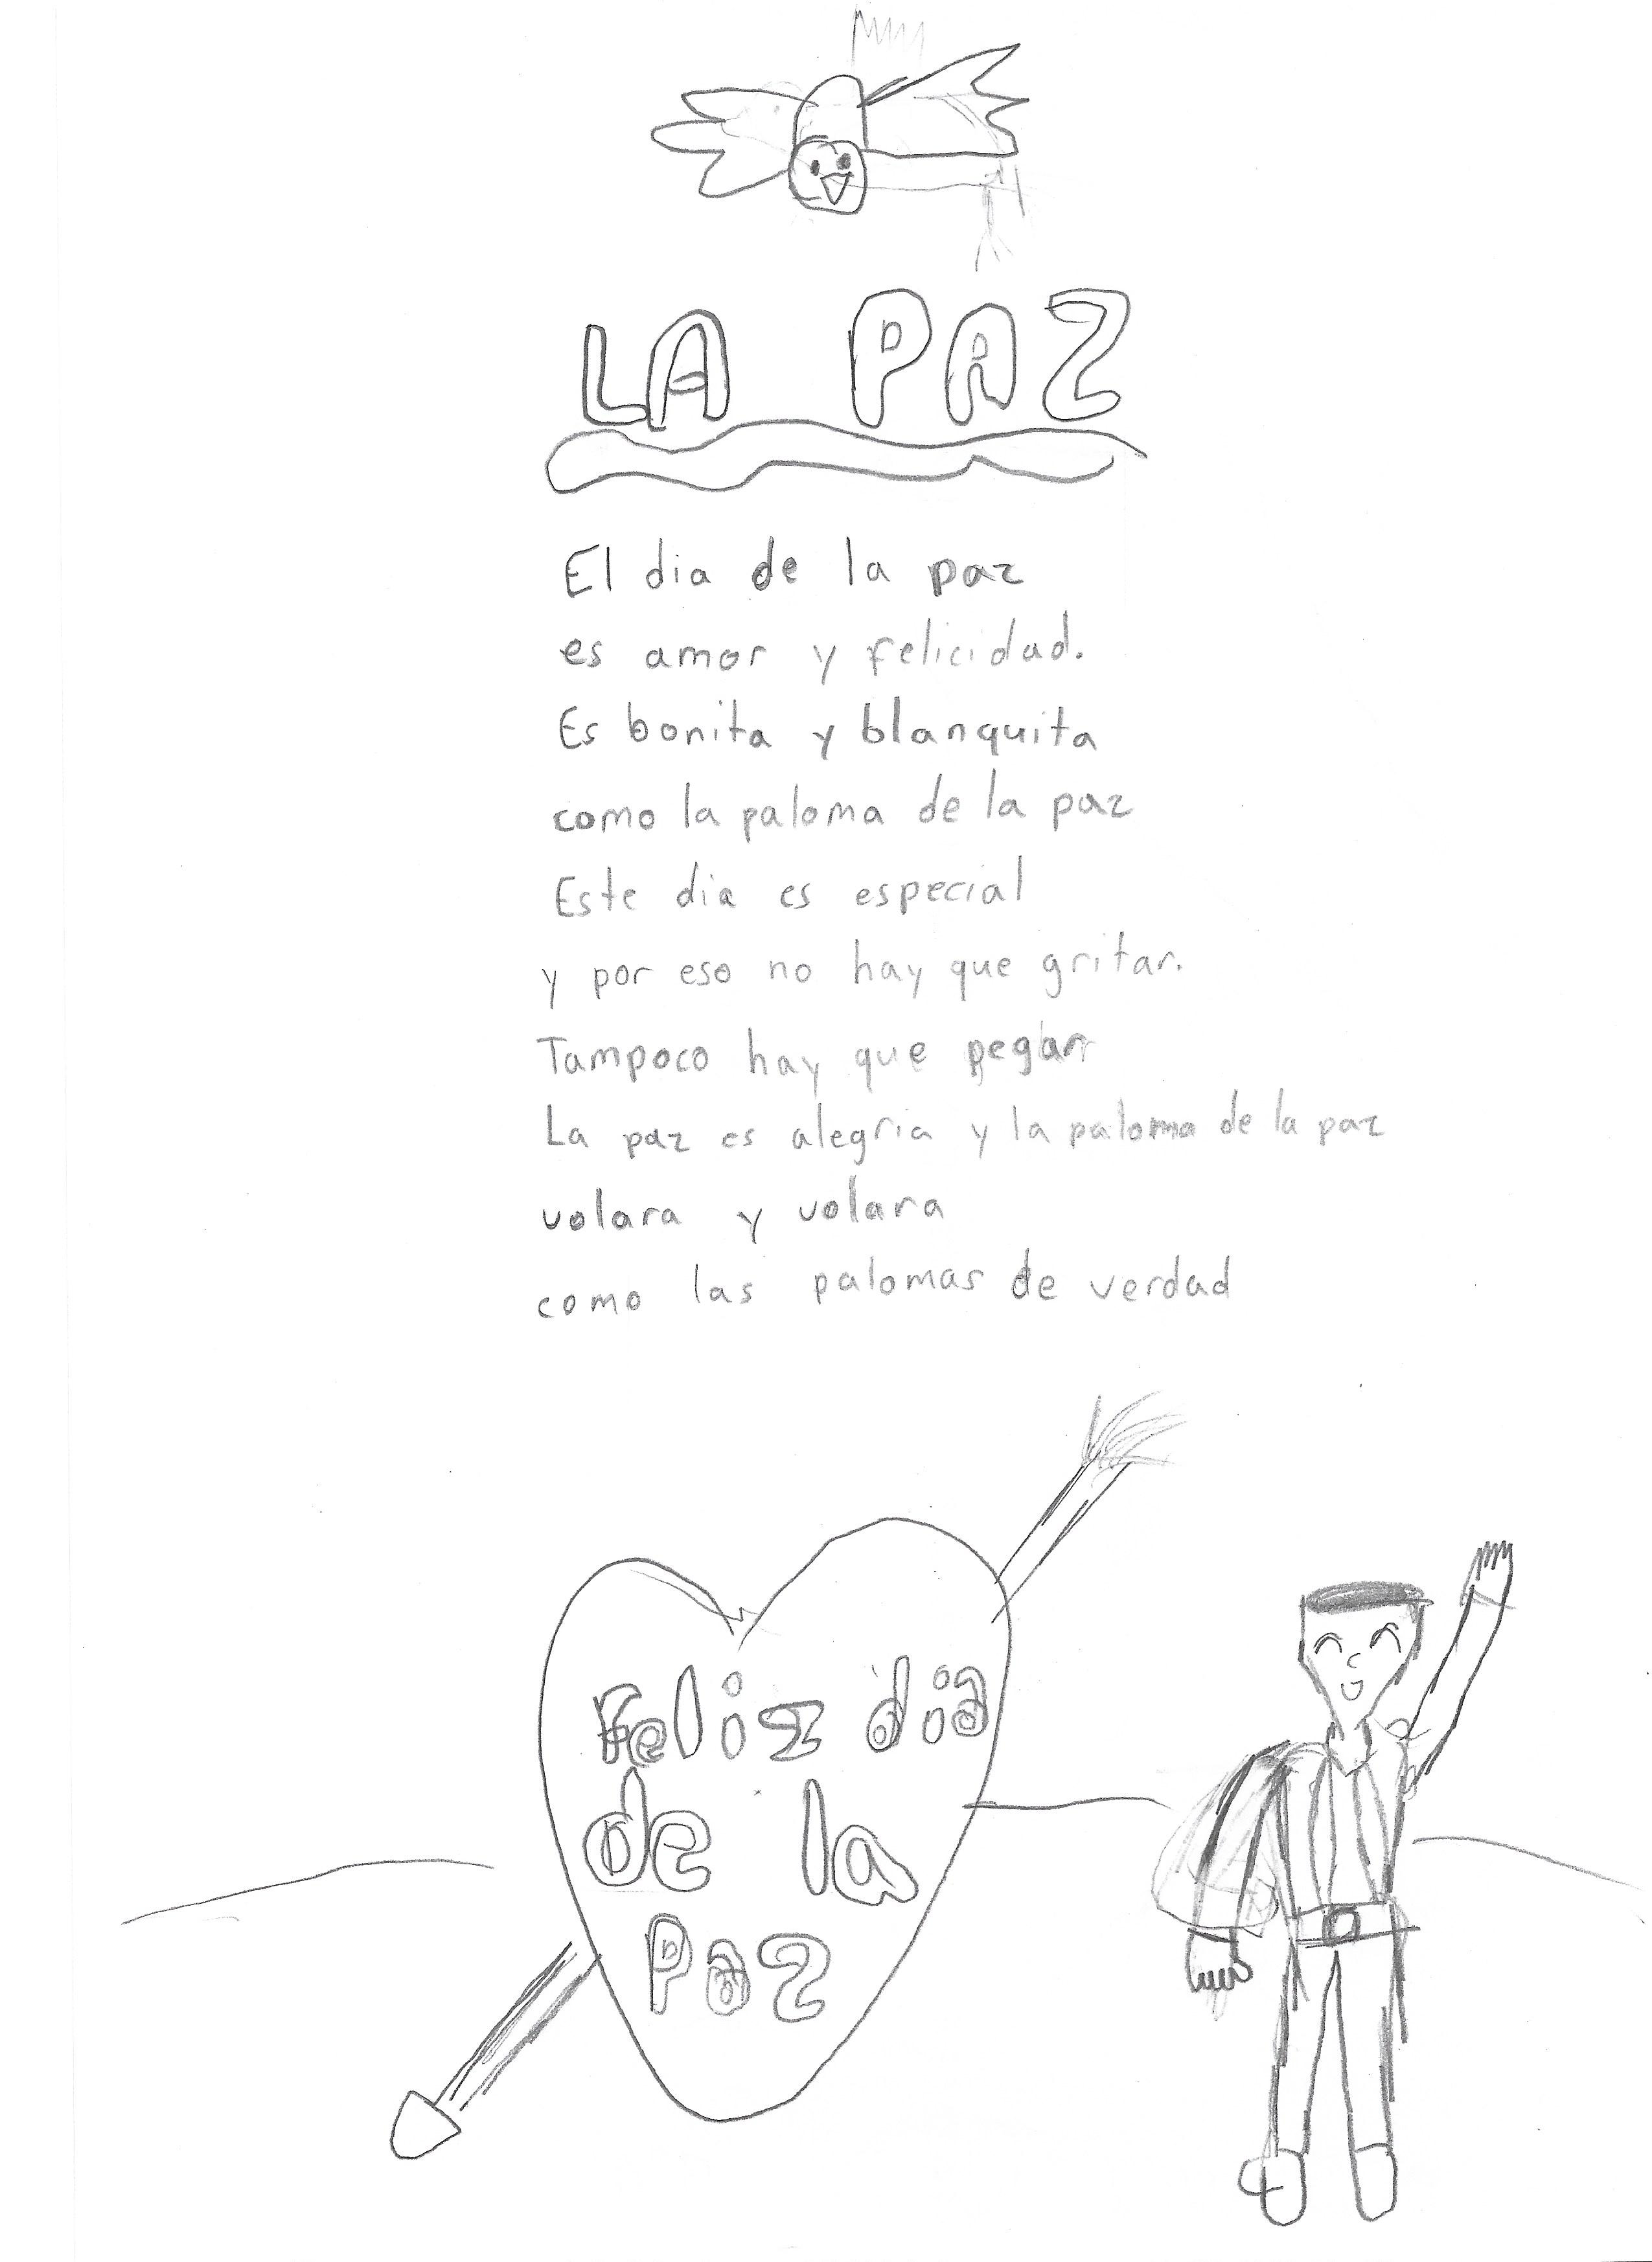 LA PAZ
El dia de la paz
es amor y felicidad.
Es bonita y blanquita
como la paloma de la paz
Este dia es especial
y por eso no hay que gritar.
Tampoco hay que pegar
La paz es alegria y la paloma de la paz
volara y volara
como las palomas de verdad
Feliz dia
de la
Paz